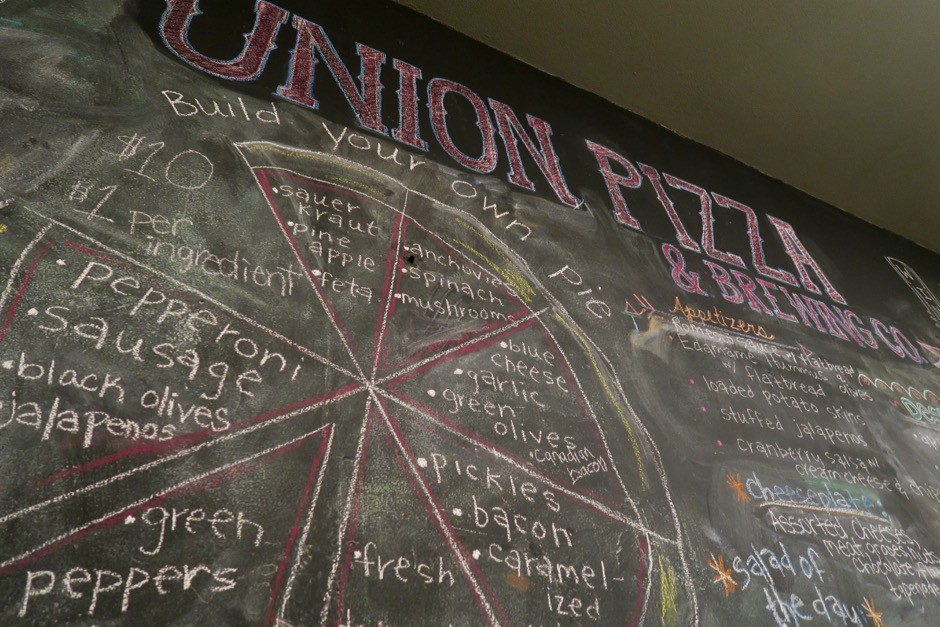 UNION PIZZA
& BREWING CO.
Build Your Own Pie
$10
$1 per
ingredient
• sauer
kraut
• pine
apple
• feta
• anchuvies
• spinach
• mushrooms
• Pepperoni
• Sausage
• black olives
jalapenos
• blue
cheese
• garlic
• green
olives
• Canadian
bacon
• pickles
• bacon
• caramel-
ized
• fresh
• green
peppers
Appetizers
• Edamame hummus
w/ flatbread
olives
• loaded potato skins
• stuffed jalapenos
• cranberry salsa w/
cream cheese &
cheeseplate
Assorted cheeses
meat grapes nuts
chocolate
salad of
the day